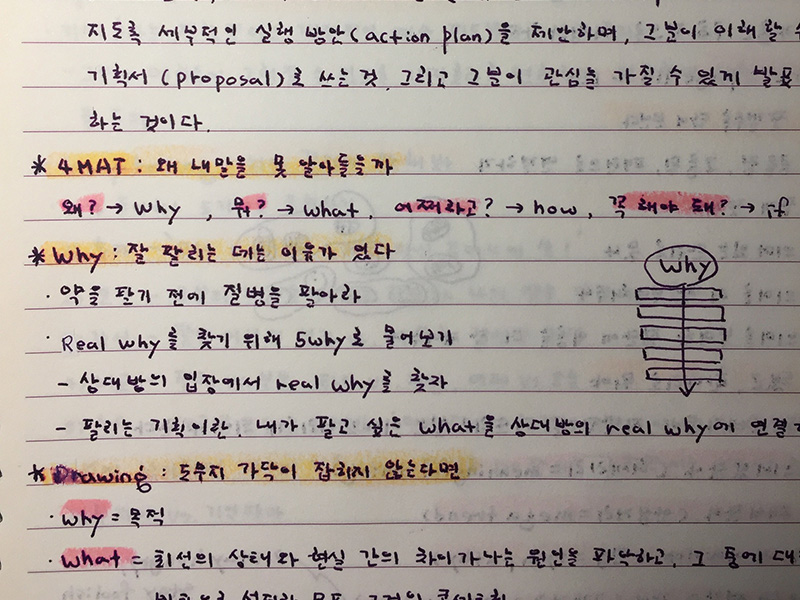 지도록 세부적인 실행 방안(action plan)을 제안하며, 그분이 이해할 수
기획서(proposal)로 쓰는 것. 그리고 그분이 관심을 가질 수 있게 발표
하는 것이다.
* 4MAT : 왜 내말을 못 알아들을까
왜? → why, 뭐? → what, 어쩌라고? → how, 꼭 해야 돼? → if
* Why : 잘 팔리는 데는 이유가 있다
· 약을 팔기 전에 질병을 팔아라
why
· Real why를 찾기 위해 5why로 물어보기
- 상대방의 입장에서 real why를 찾자
- 팔리는 기획이란, 내가 팔고 싶은 what을 상대방의 real why에 연결
* Drawing : 도무지 가닥이 잡히지 않는다면
· why = 목적
· what = 최선의 상태와 현실 간의 차이가 나는 원인을 파악하고, 그 중에 대